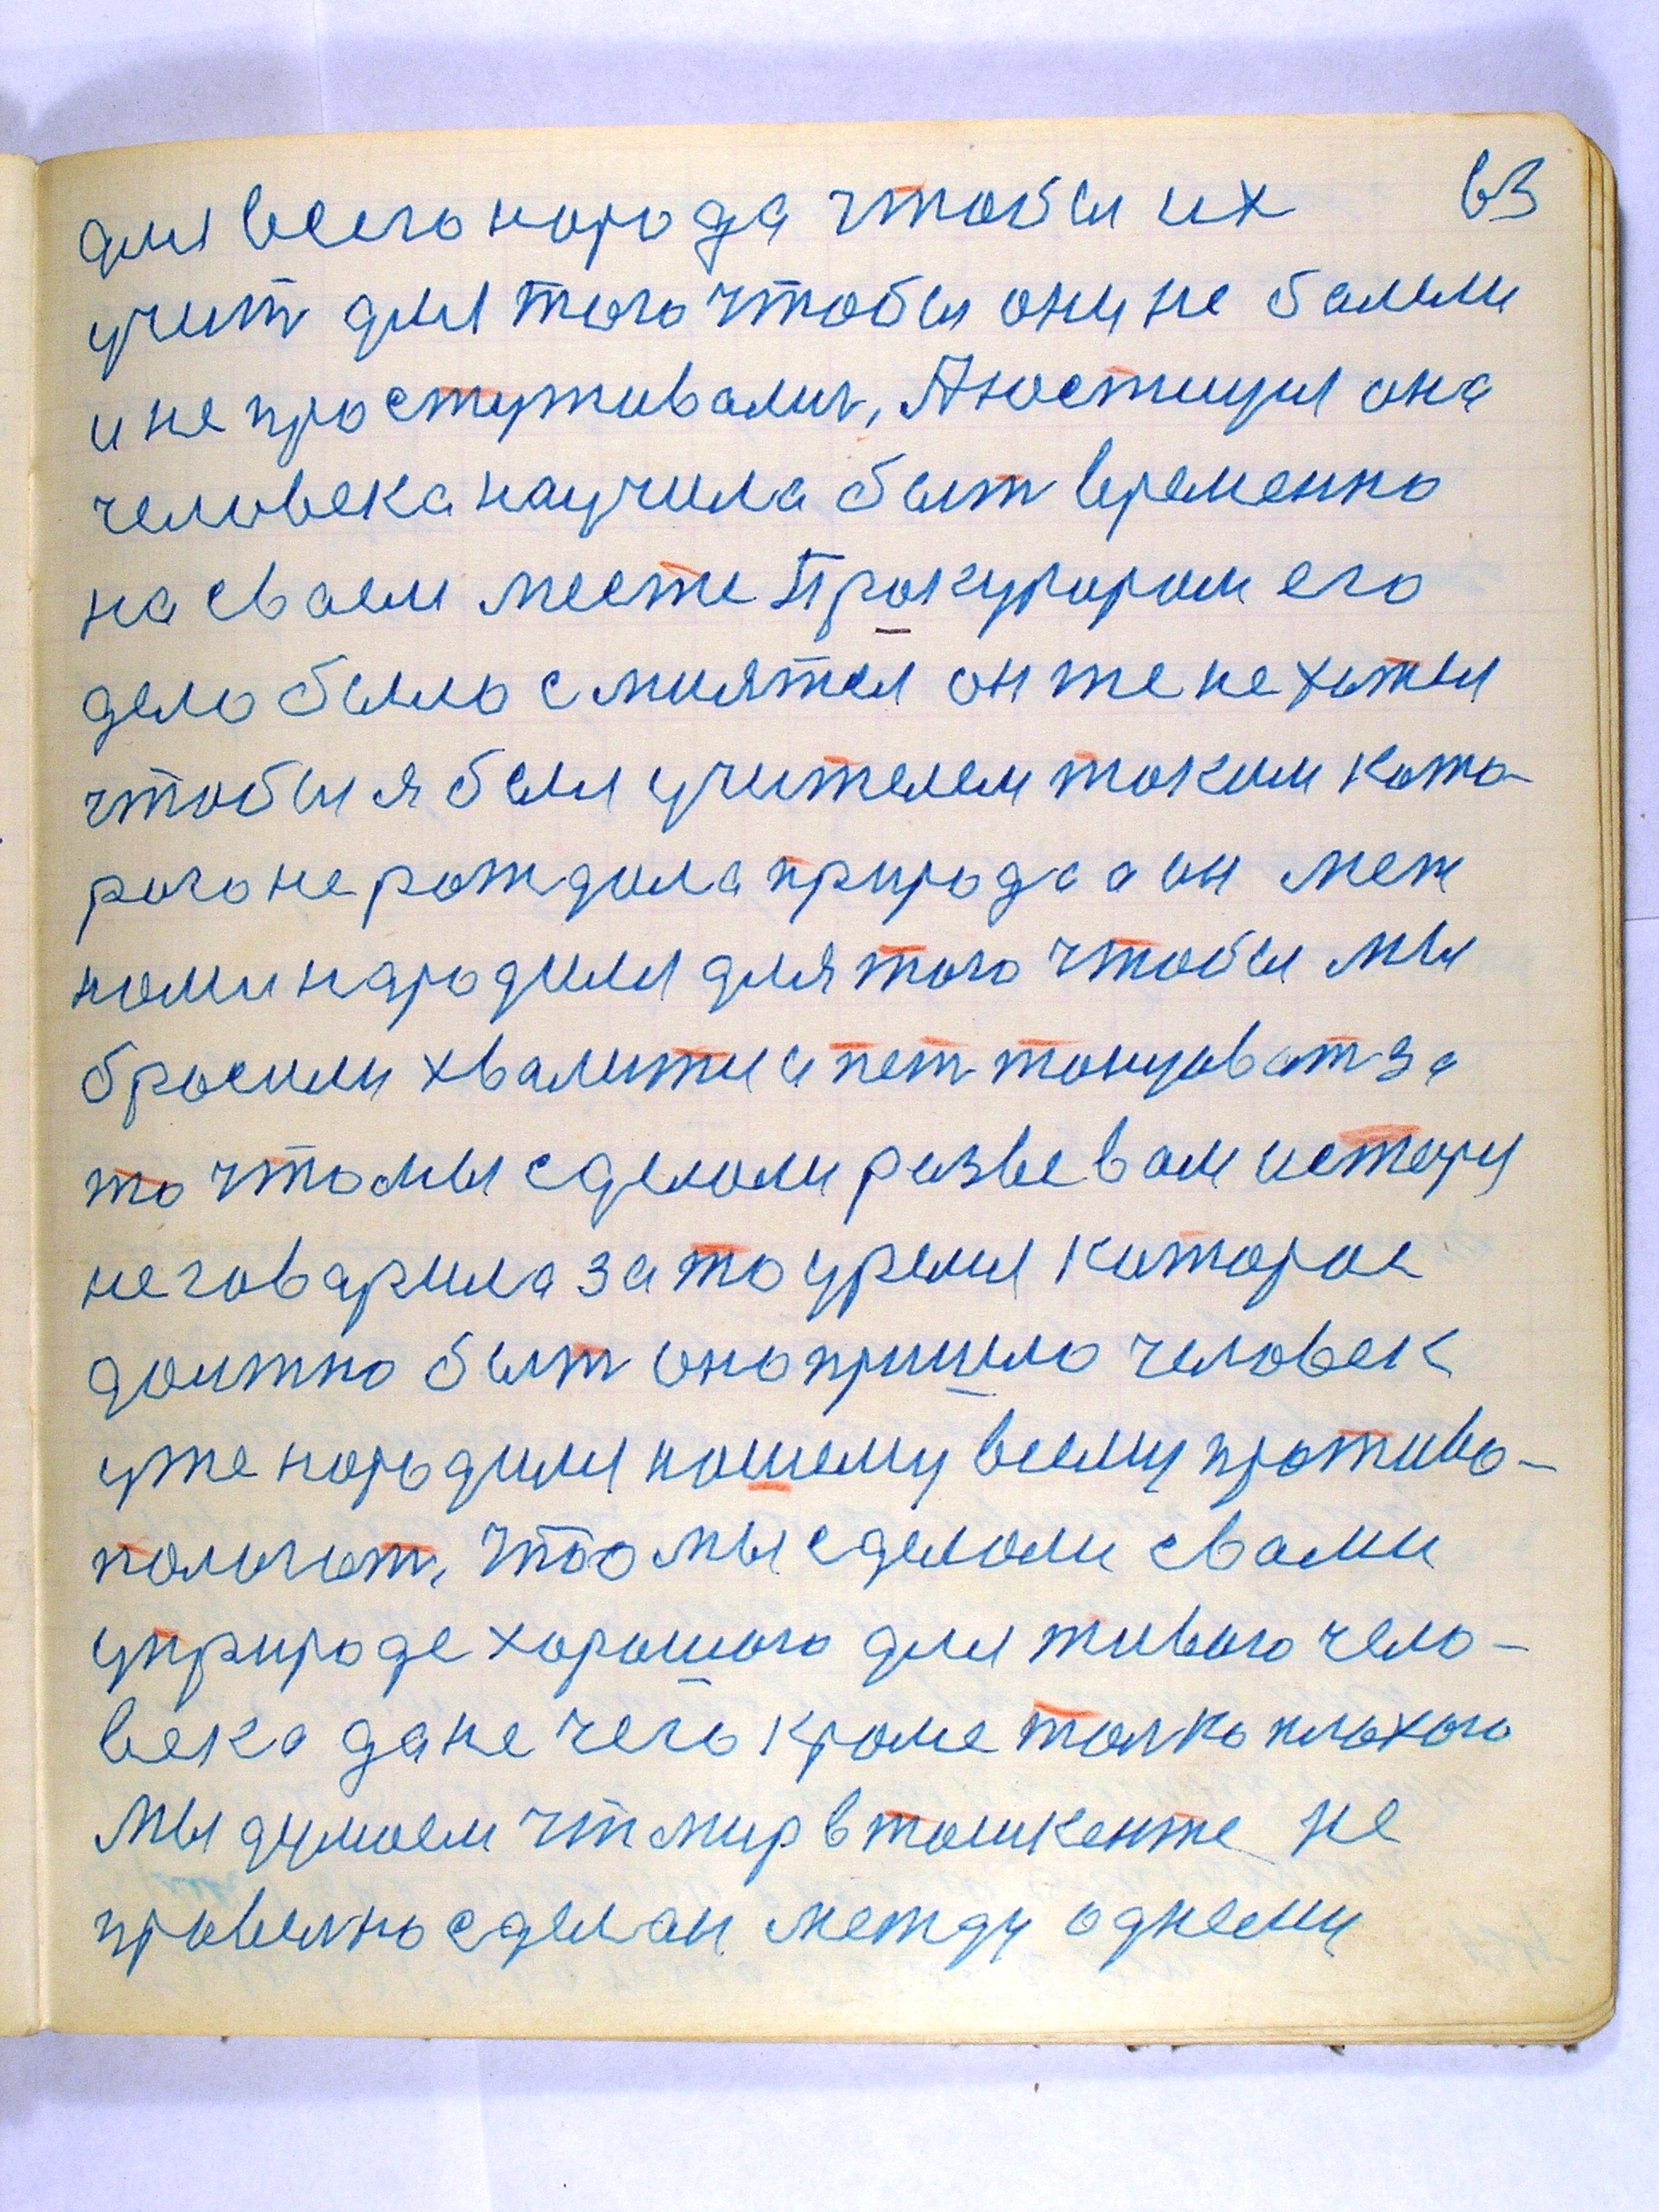 63
для всего народа чтобы их
учит для того чтобы они не балели
и не простуживались, А юстиция она
человека научила быт временно
на сваем месте Прокурорам его
дело было смиятся он же не хотел
чтобы я был учителем таким като-
рого не рождала природа а он меж
нами народился для того чтобы мы
бросили хвалится и пет танцоват за
то что мы сделали разве вам истори
не говарила за то уремя каторае
должно быт оно пришло человек
уже народился нашему всему противо-
положост, Что мы сделали с вами
у природе харошого для живого чело-
века да не чего кроме толко плохого
Мы думаем чт мир в ташкенте не
правелно сделан между однеми